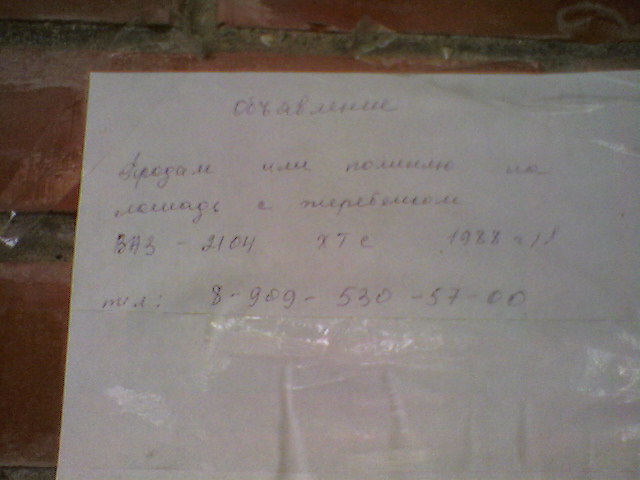 Объявление
Продам или поменяю на
лошадь с жеребёнком
ВАЗ - 2104 ХТС 1988 г.
тел: 8-909-530-57-00